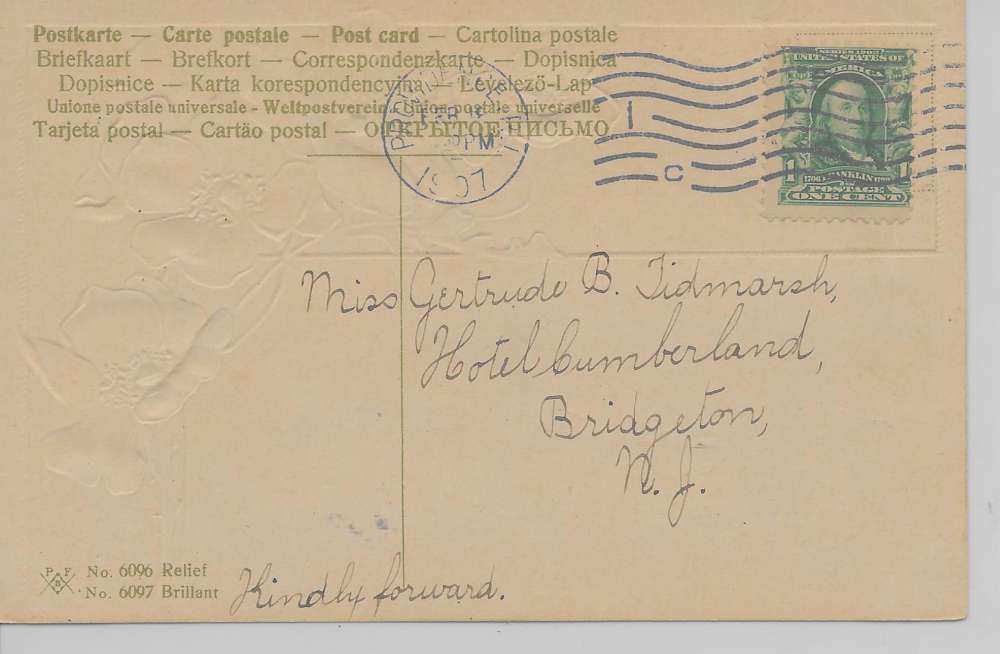 Postkarte — Carte postale — Post card — Cartolina postale
Briefkaart — Brefkort — Correspondenzkarte — Dopisnica
Dopisnice — Karta korespondencyjna — Levelező-Lap
Unione postale universale - Weltpostverein - Union postale universelle
Tarjeta postal — Cartão postal — ОТКРЫТОЕ ПИСЬМО
PM
1907
1
C
SERIES 1902
UNITED STATES OF
AMERICA
1 1
1706 FRANKLIN 1790
POSTAGE
ONE CENT
Miss Gertrude B. Tidmarsh,
Hotel Cumberland,
Bridgeton,
N. J.
P F
B
No. 6096 Relief
No. 6097 Brillant
Kindly forward.